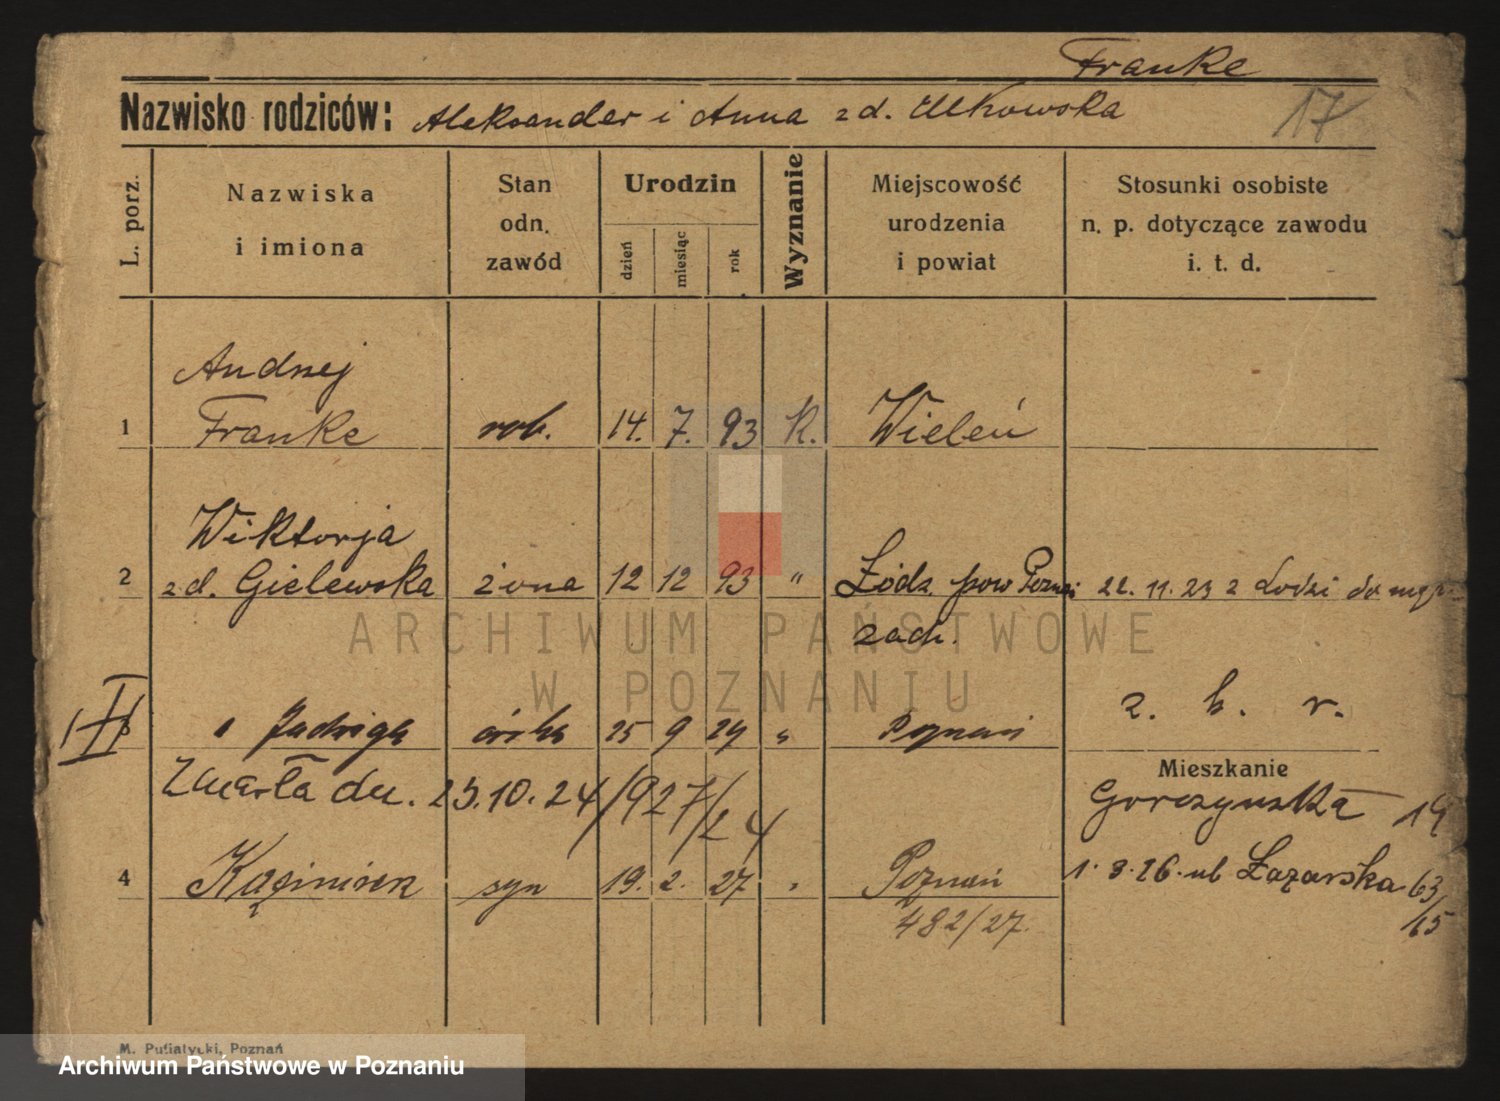 Franke
Nazwisko rodziców: Aleksander i Anna zd. Ulkowska
17
L. porz.
Nazwiska i imiona
Stan odn. zawód
Urodzin
dzień miesiąc rok
Wyznanie
Miejscowość urodzenia i powiat
Stosunki osobiste n. p. dotyczące zawodu i. t. d.
Andrzej
1 Franke rob. 14. 7. 93 K. Wieleń
Wiktorja
2 zd. Gielewska żona 12 12 93 " Łódz pow Poznań 22. 11. 23 z Lodzi
zach.
ARCHIWUM PAŃSTWOWE
W POZNANIU
z. b. r.
3 Jadwiga córka 25 9 24 " Poznań
Mieszkanie
Zmarła dn. 25.10.24/927/24
Gorczyńska 19
4 Kazimierz syn 19. 2. 27 " Poznań
1. 8. 26. ul Łazarska 63/65
482/27.
M. Putiatycki, Poznań
Archiwum Państwowe w Poznaniu